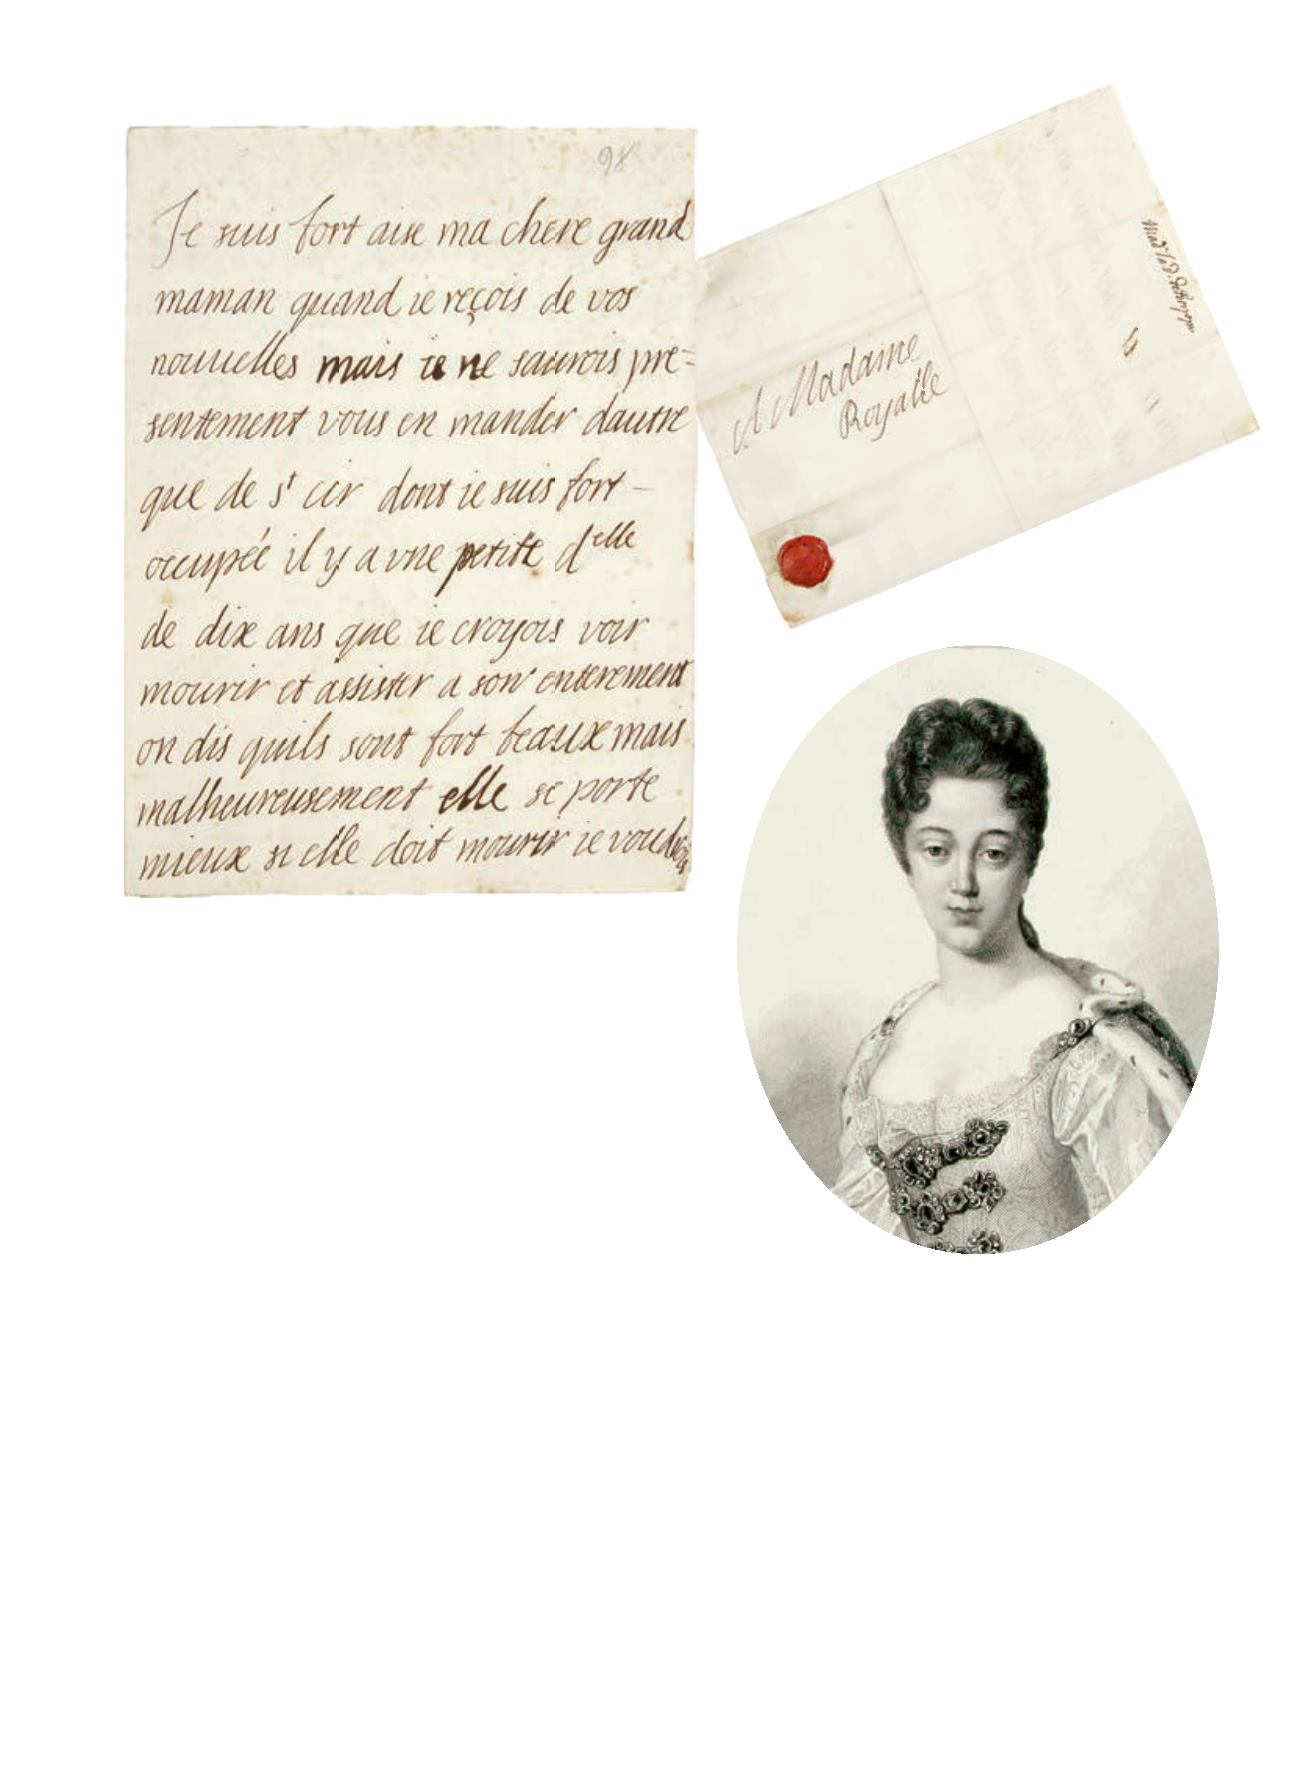 98
Je suis fort aise ma chere grand
maman quand ie reçois de vos
nouuelles mais ie ne saurois pre=
sentement vous en mander dautre
que de s^t cir dont ie suis fort –
occupée il y a vne petite d^elle
de dix ans que ie croyois voir
mourir et assister a son enterement
on dis quils sont fort beaux mais
malheureusement elle se porte
mieux si elle doit mourir ie voudrois
A Madame
Royalle